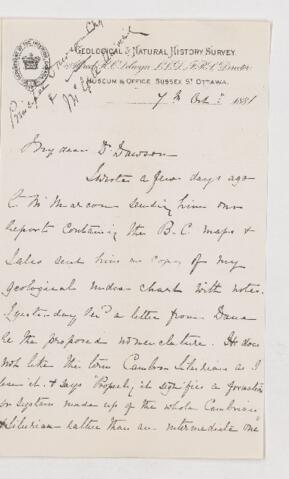 GEOLOGICAL & NATURAL HISTORY SURVEY.
Alfred R. C. Selwyn, L.L.D., F.R.S., Director.
MUSEUM & OFFICE SUSSEX ST OTTAWA.
Principal Dawson
McGill
7th Octr 1881
My dear Dr Dawson
I wrote a few days ago
to Mr Marcou sending him our
Reports containing the B.C. maps &
I also sent him a copy of my
geological index chart with notes.
Yesterday recd a letter from Dana
re the proposed nomenclature. He does
not like the term Cambro Silurian as I
use it & says "Properly it signifies a formation
or system made up of the whole Cambrian
& Silurian rather than an intermediate one